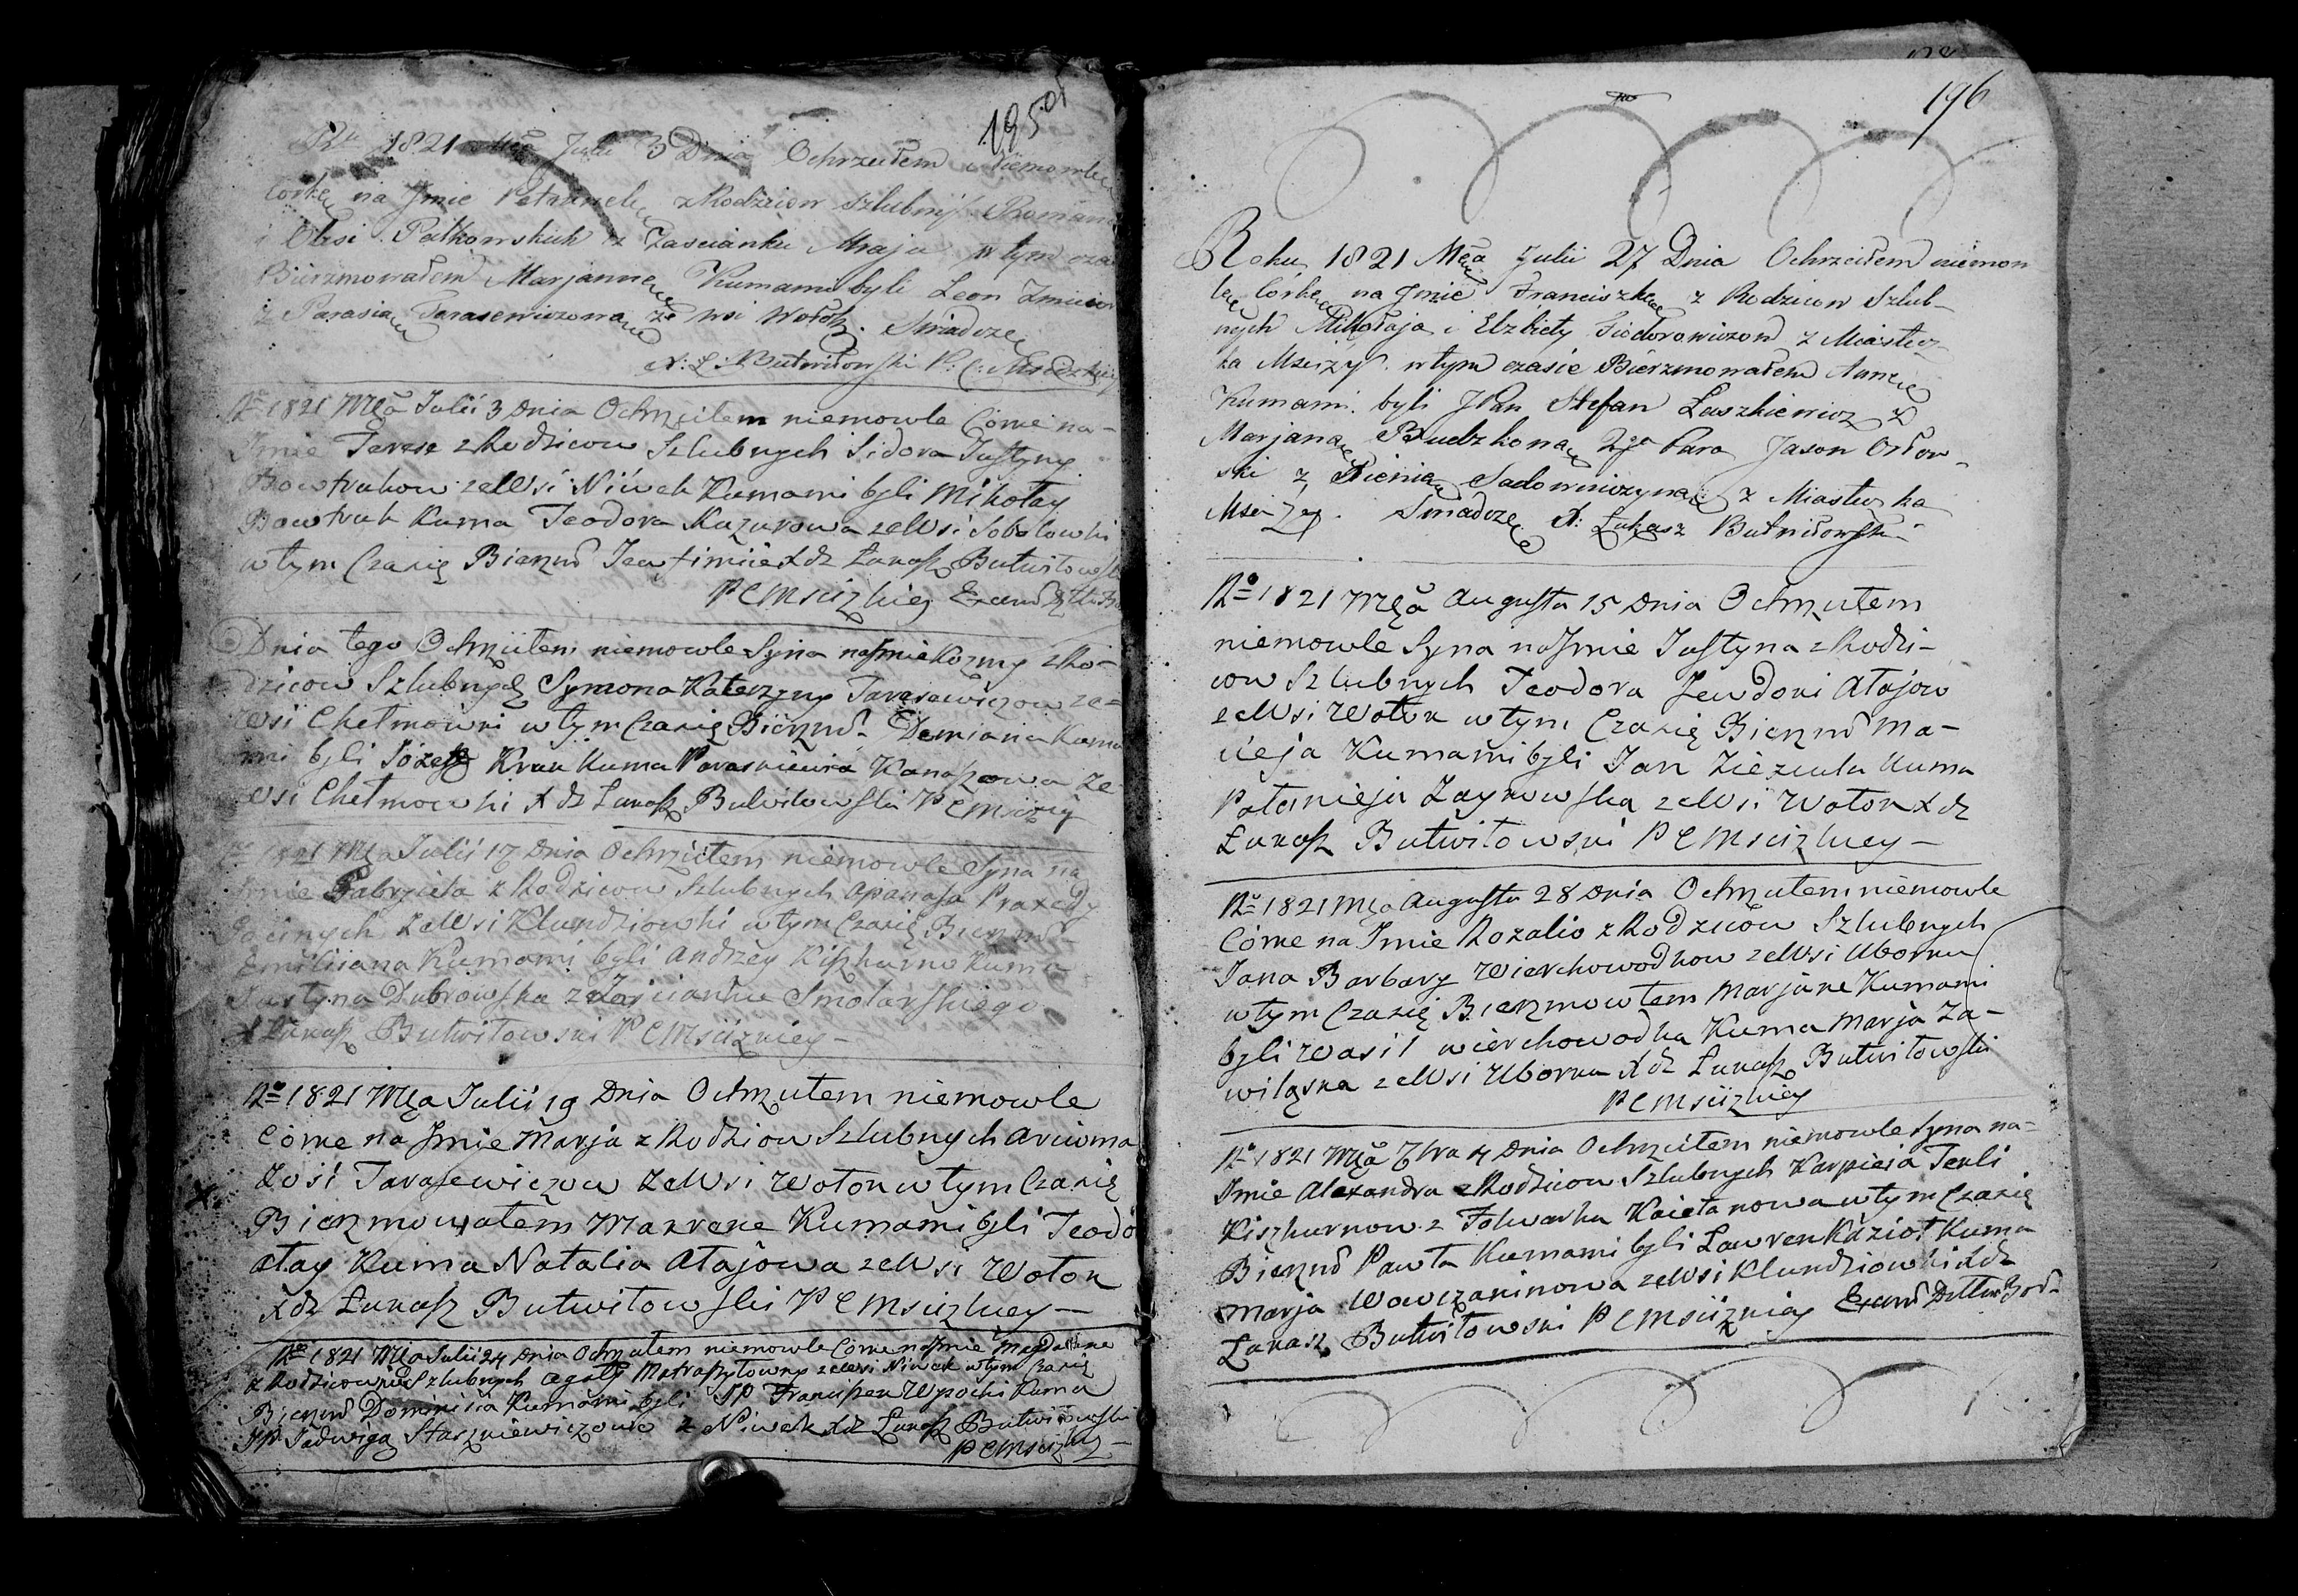 195 ob
Rku 1821 Mca Julii 3 Dnia Ochrzciłem Niemowle
Corkę na Jmie Petrunelę z Rodzicow Szlubnych Romana
i Ołesi Pałkowskich z Zascianku Mraja w tym cza
Bierzmowałem Marjannę Kumami byli Leon
z Parasią Tarasewiczową ze wsi Wołok. Swiadczę
X: Ł: Butwiłowski P: C:
Rº 1821 Mca Julii 3 Dnia Ochrzcilem niemowle Córke na-
Jmie Terese z Rodzicow Szlubnych Sidora Justyny
Bowtrukow ze Wsi Niwek Kumami byli Mikołay
Bowtruk Kuma Teodora Kazurowa ze Wsi Sobolowki
w tym Czasię Bierzmd Jewfimiie Xdz Łukasz Butwiłowski
P C Msciżkiey
Dnia tego Ochrzciłem niemowle Syna na Jmie Kozmy z Ro-
dzicow Szlubnych Symona Katerzyny Tarasewiczow ze-
wsi Chełmowki w tym Czasię Bierzmd. Demiana Kuma
mi byli Józef Kruk Kuma Paraskiewia Kanaszowa ze-
wsi Chełmowki Xdz Łukasz Butwiłowski P C Msciży
Rº 1821 Mca Julii 17 Dnia Ochrzciłem niemowle Syna na
Jmie Gabryieła z Rodzicow Szlubnych Apanasa Praxedy
ze Wsi Klundziowki w tym Czasię Bierzmd
Emiliiana Kumami byli Andrzey Kiszkurno Kuma
Justyna Dubrowska z Zascianku Smolarskiego
X Łukasz Butwiłowski P C Msciżkiey-
Rº 1821 Mca Julii 19 Dnia Ochrzciłem niemowle
Córke na Jmie Marja z Rodzicow Szlubnych Arcioma
Zosi Tarasewiczow ze Wsi Wołok w tym Czasię
Bierzmowałem Makrene Kumami byli Teodo
Ałay Kuma Natalia Ałajowa ze Wsi Wołok
Xdz Łukasz Butwiłowski P C Msciżkiey-
Rº 1821 Mca Julii 24 Dnia Ochrzciłem niemowle Córke na Jmie Magdalene
z Rodzicow Szlubnych Agaty Matraszyłowny ze Wsi Niwek w tym Czasię
Bierzmd Dominiia Kumami byli JP Franciszek Wysocki Kuma
JP Jadwiga Staszkiewiczowa z Niwek Xdz Łukasz Butwiłowski
P C Msciżkiey-
196
Roku 1821 Mca Julii 27 Dnia Ochrzciłem niemow
lę Corkę na Jmie Franciszkę z Rodzicow Szlub-
nych Mikołaja i Elzbiety Fiodorowiczow z Miastecz
ka Mscizy w tym czasie Bierzmowałem Annę
Kumami byli JPan Stefan Łaszkiewicz z
Marjaną Budzkoną 2ga Para Jason Orłow-
ski z Xienią Sadowniczyną z Miasteczka
Msciży. Swiadczę X: Łukasz Butwiłowski
Rº 1821 Mca Augusta 15 Dnia Ochrzciłem
niemowle Syna na Jmie Justyna z Rodzi-
cow Szlubnych Teodora Jewdoki Ałajow
ze Wsi Wołok w tym Czasię Bierzmd Ma-
cieja Kumami byli Jan Ziezula Kuma
Połonieja Zaykowska ze Wsi Wołok Xdz
Łukasz Butwiłowski P C Msciżkiey-
Rº 1821 Mca Augusta 28 Dnia Ochrzciłem niemowle
Córke na Jmie Rozalio z Rodzicow Szlubnych
Jana Barbary Wierchowodkow ze Wsi Uborku
w tym Czasię Bierzmowłem Marjane Kumami
byli Wasil Wierchowodka Kuma Marja Za-
wiląska ze Wsi Uborku Xdz Łukasz Butwiłowski
P C Msciżkiey
Rº 1821 Mca 7bra 4 Dnia Ochrzciłem niemowle Syna na-
Jmie Alexandra z Rodzicow Szlubnych Karpieia Tekli
Kiszkurnow z Folwarku Kaietanowa w tym Czasię
Bierzmd Pawła Kumami byli Ławren Kozioł Kuma
Marja Wowczaninowa ze Wsi Klundziowki Xdz
Łukasz Butwiłowski P C Msciżkiey